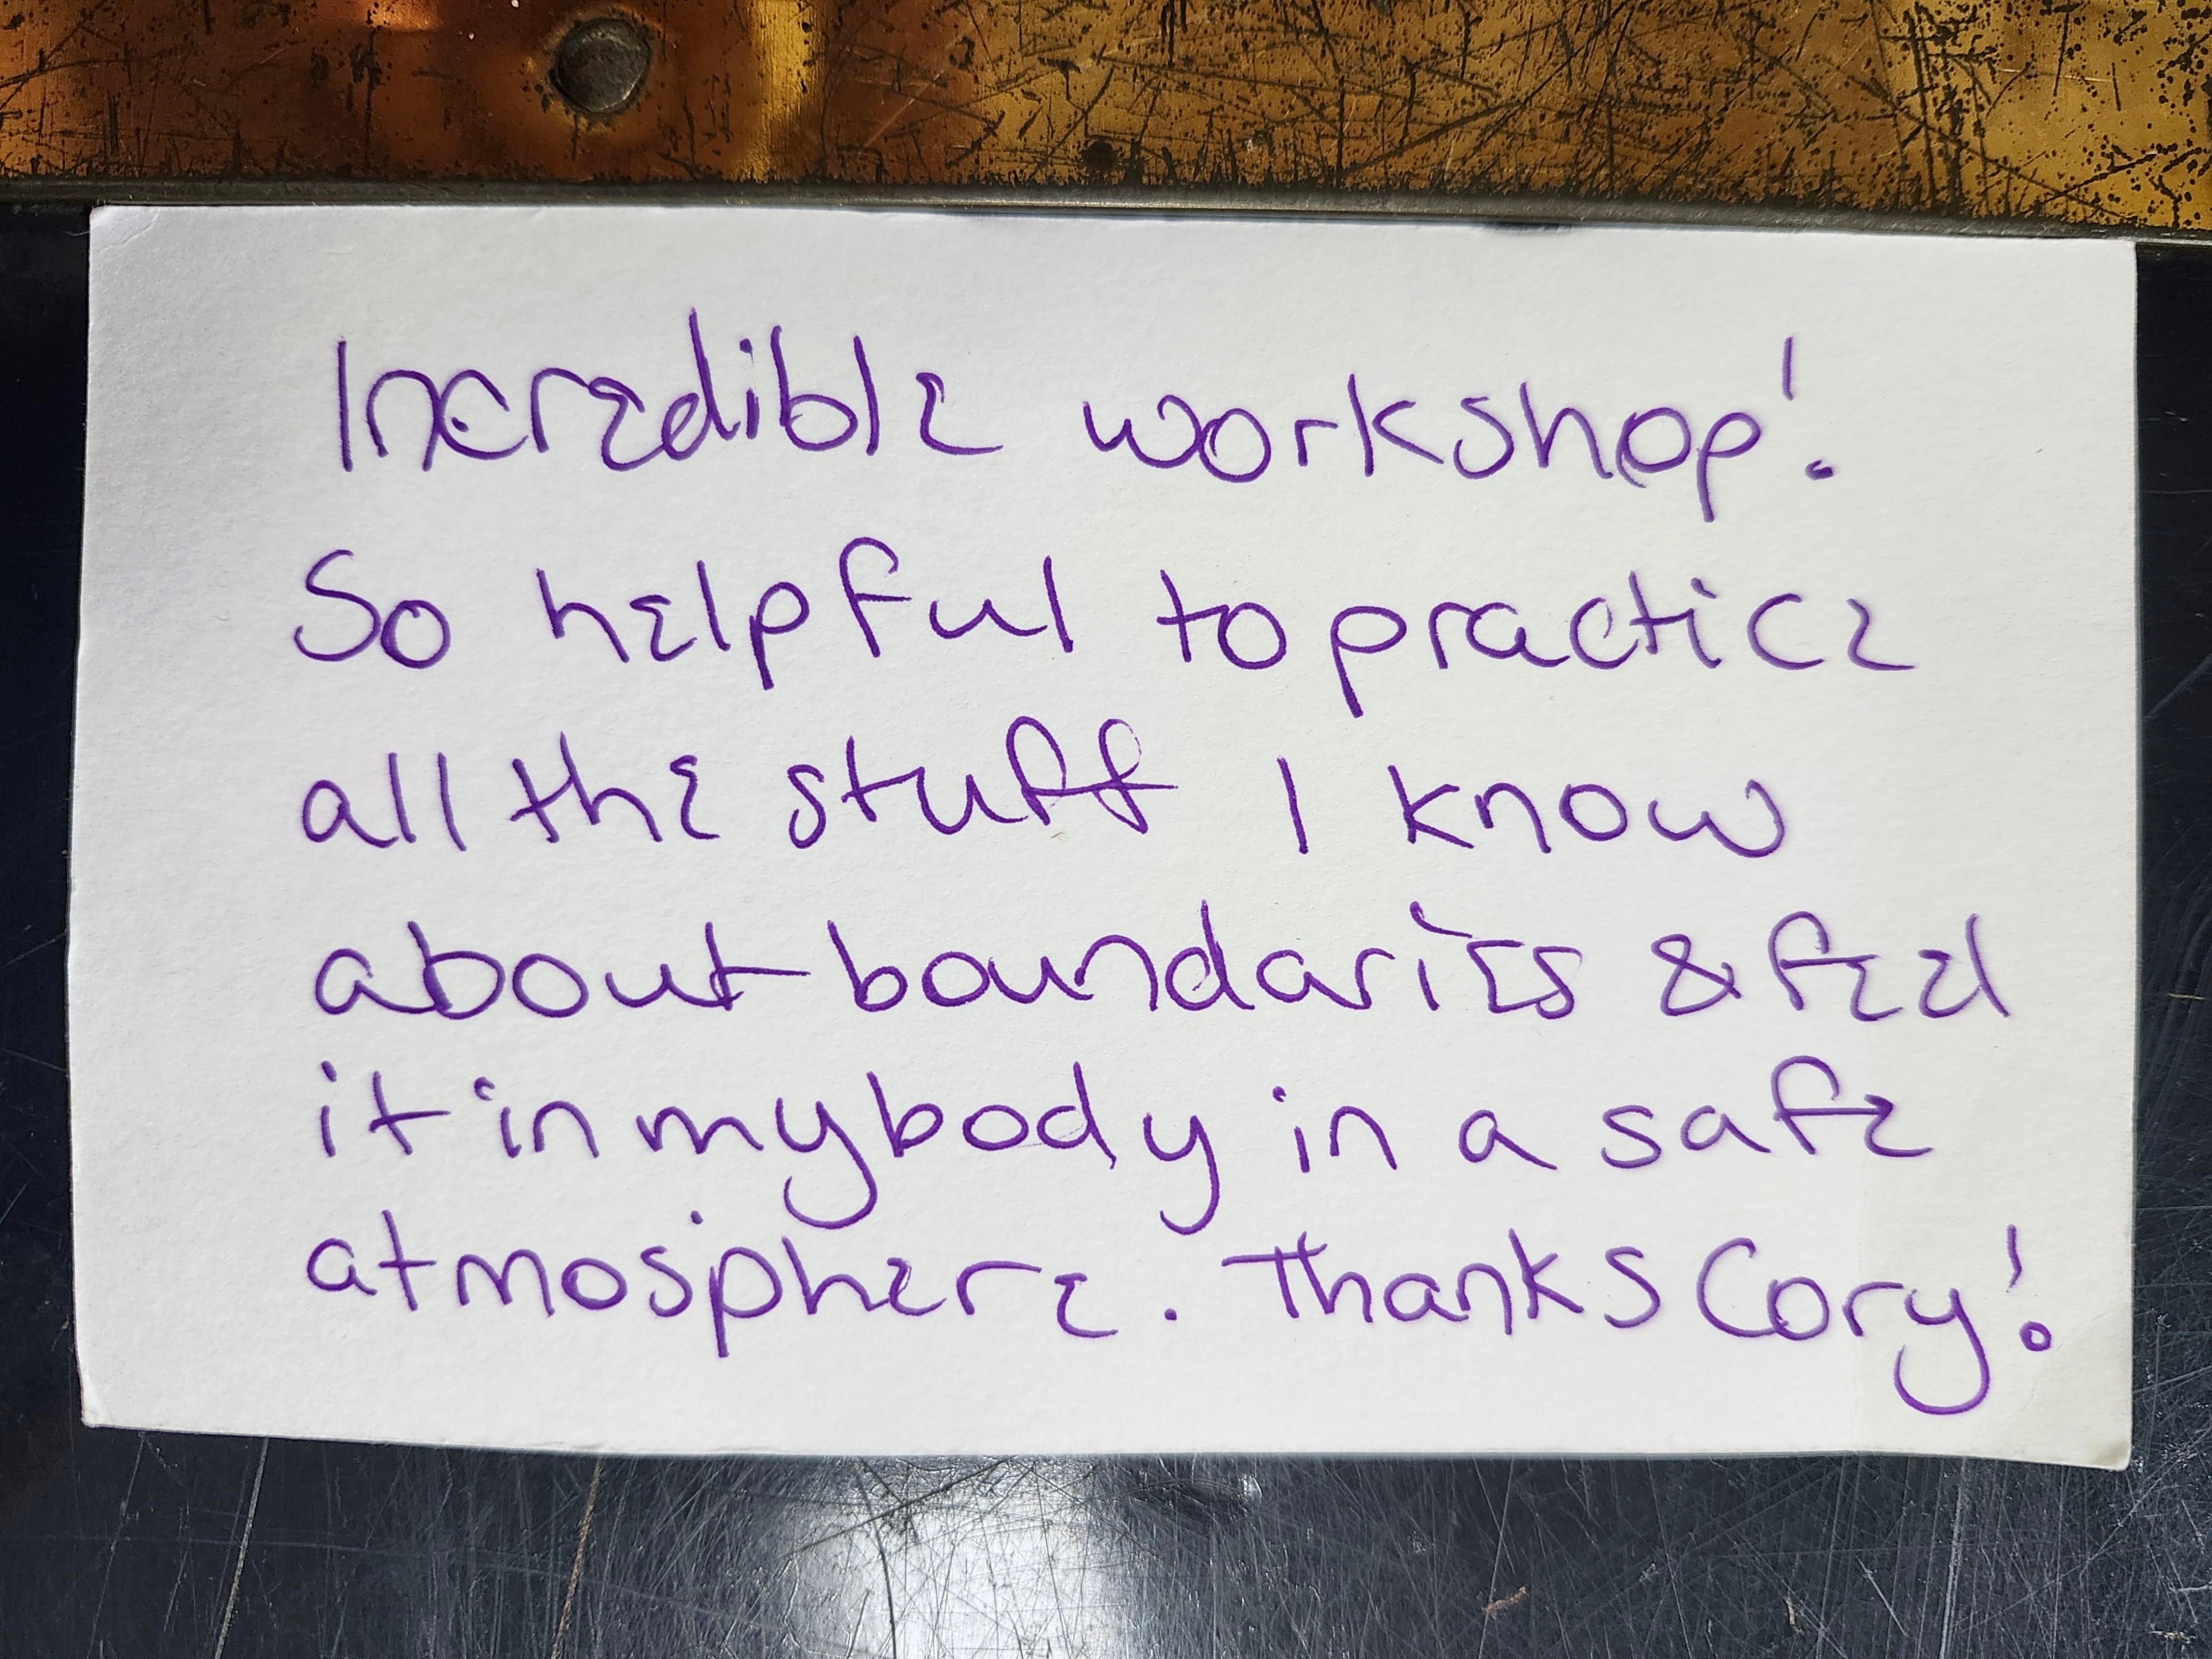 Incredible workshop!
So helpful to practice
all the stuff I know
about boundaries & feel
it in my body in a safe
atmosphere. Thanks Cory!